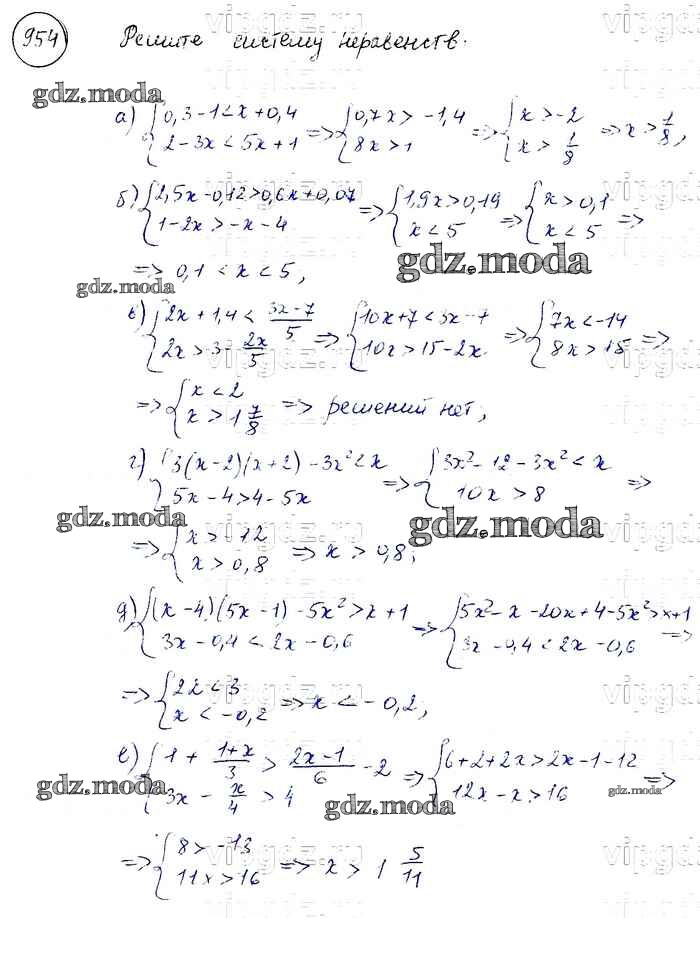 954 Решите систему неравенств.
gdz.moda
а) {0,3-1<x+0,4 2-3x<5x+1 => {0,7x>-1,4 8x>1 => {x>-2 x>1/8 => x>1/8,
б) {2,5x-0,12>0,6x+0,07 1-2x>-x-4 => {1,9x>0,19 x<5 => {x>0,1 x<5 =>
=> 0,1<x<5,
gdz.moda
gdz.moda
в) {2x+1,4<(3x-7)/5 2x>3-2x/5 => {10x+7<3x-7 10x>15-2x => {7x<-14 8x>15 =>
=> {x<2 x>1 7/8 => решений нет,
г) {3(x-2)(x+2)-3x²<x 5x-4>4-5x => {3x²-12-3x²<x 10x>8 =>
gdz.moda
gdz.moda
=> {x>-12 x>0,8 => x>0,8,
д) {(x-4)(5x-1)-5x²>x+1 3x-0,4<2x-0,6 => {5x²-x-20x+4-5x²>x+1 3x-0,4<2x-0,6 =>
=> {22x<3 x<-0,2 => x<-0,2,
е) {1+(1+x)/3>(2x-1)/6-2 3x-x/4>4 => {6+2+2x>2x-1-12 12x-x>16 =>
gdz.moda
gdz.moda
gdz.moda
=> {8>-13 11x>16 => x>1 5/11